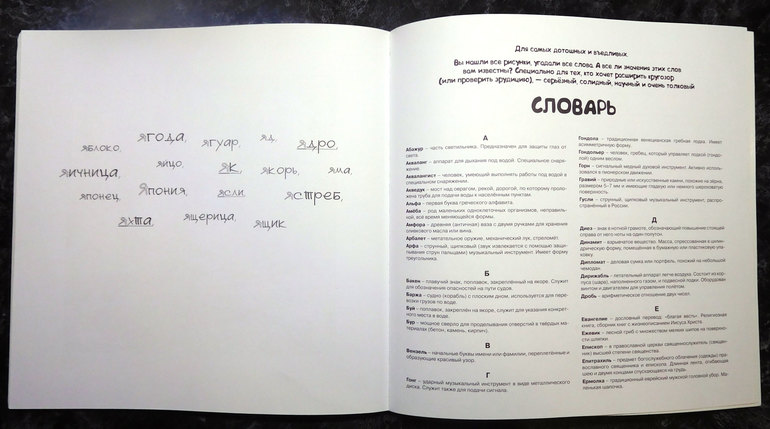 яблоко, ягода, ягуар, яд, ядро,
яичница, яйцо, як, якорь, яма,
японец, Япония, ясли, ястреб,
яхта, ящерица, ящик
Для самых дотошных и въедливых.
Вы нашли все рисунки, угадали все слова. А все ли значения этих слов
вам известны? Специально для тех, кто хочет расширить кругозор
(или проверить эрудицию), – серьёзный, солидный, научный и очень толковый
СЛОВАРЬ
А
Абажур – часть светильника. Предназначен для защиты глаз от
света.
Акваланг – аппарат для дыхания под водой. Специальное снаря-
жение.
Аквалангист – человек, умеющий выполнять работы под водой в
специальном снаряжении.
Акведук – мост над оврагом, рекой, дорогой, по которому проло-
жена труба для подачи воды к населённым пунктам.
Альфа – первая буква греческого алфавита.
Амёба – род маленьких одноклеточных организмов, неправиль-
ной, всё время меняющейся формы.
Амфора – древняя (античная) ваза с двумя ручками для хранения
оливкового масла или вина.
Арбалет – метательное оружие, механический лук, стреломёт.
Арфа – струнный, щипковый (звук извлекается с помощью защи-
пывания струн пальцами) музыкальный инструмент. Имеет форму
треугольника.
Б
Бакен – плавучий знак, поплавок, закреплённый на якоре. Служит
для обозначения опасностей на пути судов.
Баржа – судно (корабль) с плоским дном, используется для пере-
возки грузов по воде.
Буй – поплавок, закреплён на якоре, служит для указания конкрет-
ного места в воде.
Бур – мощное сверло для проделывания отверстий в твёрдых ма-
териалах (бетон, камень, кирпич).
В
Вензель – начальные буквы имени или фамилии, переплетённые и
образующие красивый узор.
Г
Гонг – ударный музыкальный инструмент в виде металлического
диска. Служит также для подачи сигнала.
Гондола – традиционная венецианская гребная лодка. Имеет
асимметричную форму.
Гондольер – человек, гребец, который управляет лодкой (гондо-
лой) одним веслом.
Горн – сигнальный медный духовой инструмент. Активно исполь-
зовался в пионерском движении.
Гравий – природные или искусственные камни, похожие на зёрна,
размером 5–7 мм и имеющие гладкую или немного шероховатую
поверхность.
Гусли – струнный, щипковый музыкальный инструмент, распро-
странённый в России.
Д
Диез – знак в нотной грамоте, обозначающий повышение стоящей
справа от него ноты на один полутон.
Динамит – взрывчатое вещество. Масса, спрессованная в цилин-
дрическую форму, помещённая в бумажную или пластиковую упа-
ковку.
Дипломат – деловая сумка или портфель, похожий на небольшой
чемодан.
Дирижабль – летательный аппарат легче воздуха. Состоит из кор-
пуса (шара), наполненного газом, и подвесной лодки. Оборудован
винтом и двигателем для управления полётом.
Дробь – арифметическое отношение двух чисел.
Е
Евангелие – дословный перевод «благая весть». Религиозная
книга, сборник книг с жизнеописанием Иисуса Христа.
Ежевик – лесной гриб с множеством мелких шипов на поверхнос-
ти шляпки.
Епископ – в православной церкви священнослужитель (священ-
ник) высшей степени священства.
Епитрахиль – предмет богослужебного облачения (одежды) пра-
вославного священника и епископа. Длинная лента, огибающая
шею и двумя концами спускающаяся на грудь.
Ермолка – традиционный еврейский мужской головной убор. Ма-
ленькая шапочка.